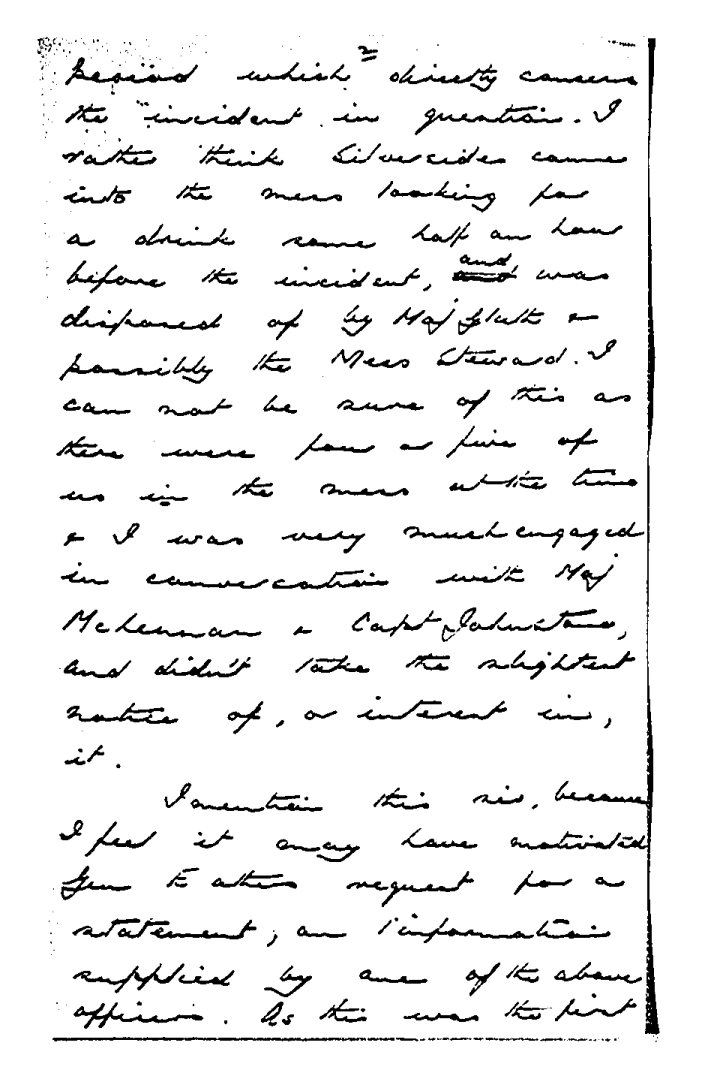 2
period which directly concerns
the incident in question. I
rather think Silversides came
into the mess looking for
a drink some half an hour
before the incident, and was
disposed of by Maj &
possibly the Mess Steward. I
can not be sure of this as
there were four or five of
us in the mess at the time
& I was very much engaged
in conversation with Maj
McLennan & Capt Johnstone,
and didn't take the slightest
notice of, or interest in,
it.
I mention this sir, because
I feel it may have motivated
Gen request for a
statement, on information
supplied by one of the above
officers. As this was the first